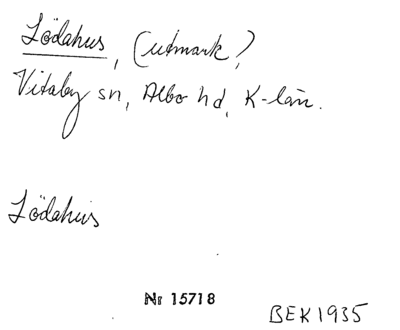 Lödahus, (utmark?
Vitaby sn, Albo hd, K-län.
Lödahus
Nr 15718
BEK 1935